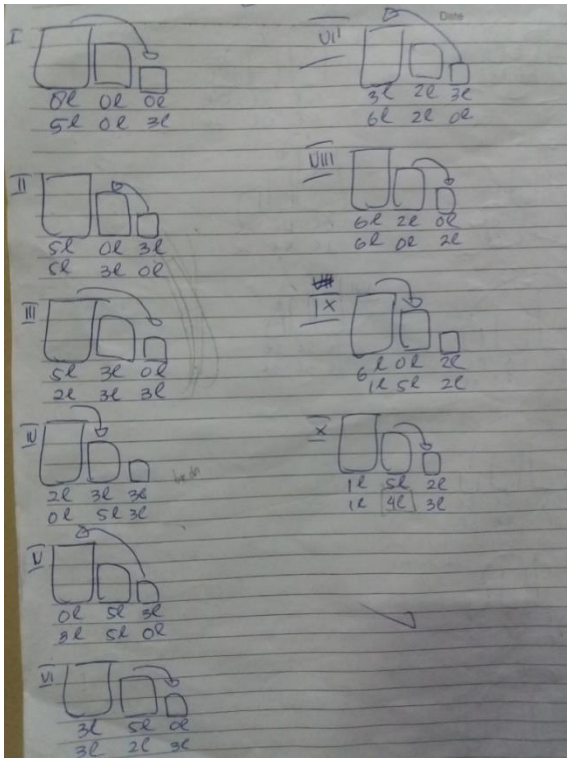 I
8l 0l 0l
5l 0l 3l
II
5l 0l 3l
5l 3l 0l
III
5l 3l 0l
2l 3l 3l
IV
2l 3l 3l
0l 5l 3l
V
0l 5l 3l
3l 5l 0l
VI
3l 5l 0l
3l 2l 3l
Date
VII
3l 2l 3l
6l 2l 0l
VIII
6l 2l 0l
6l 0l 2l
IX
6l 0l 2l
1l 5l 2l
X
1l 5l 2l
1l 4l 3l